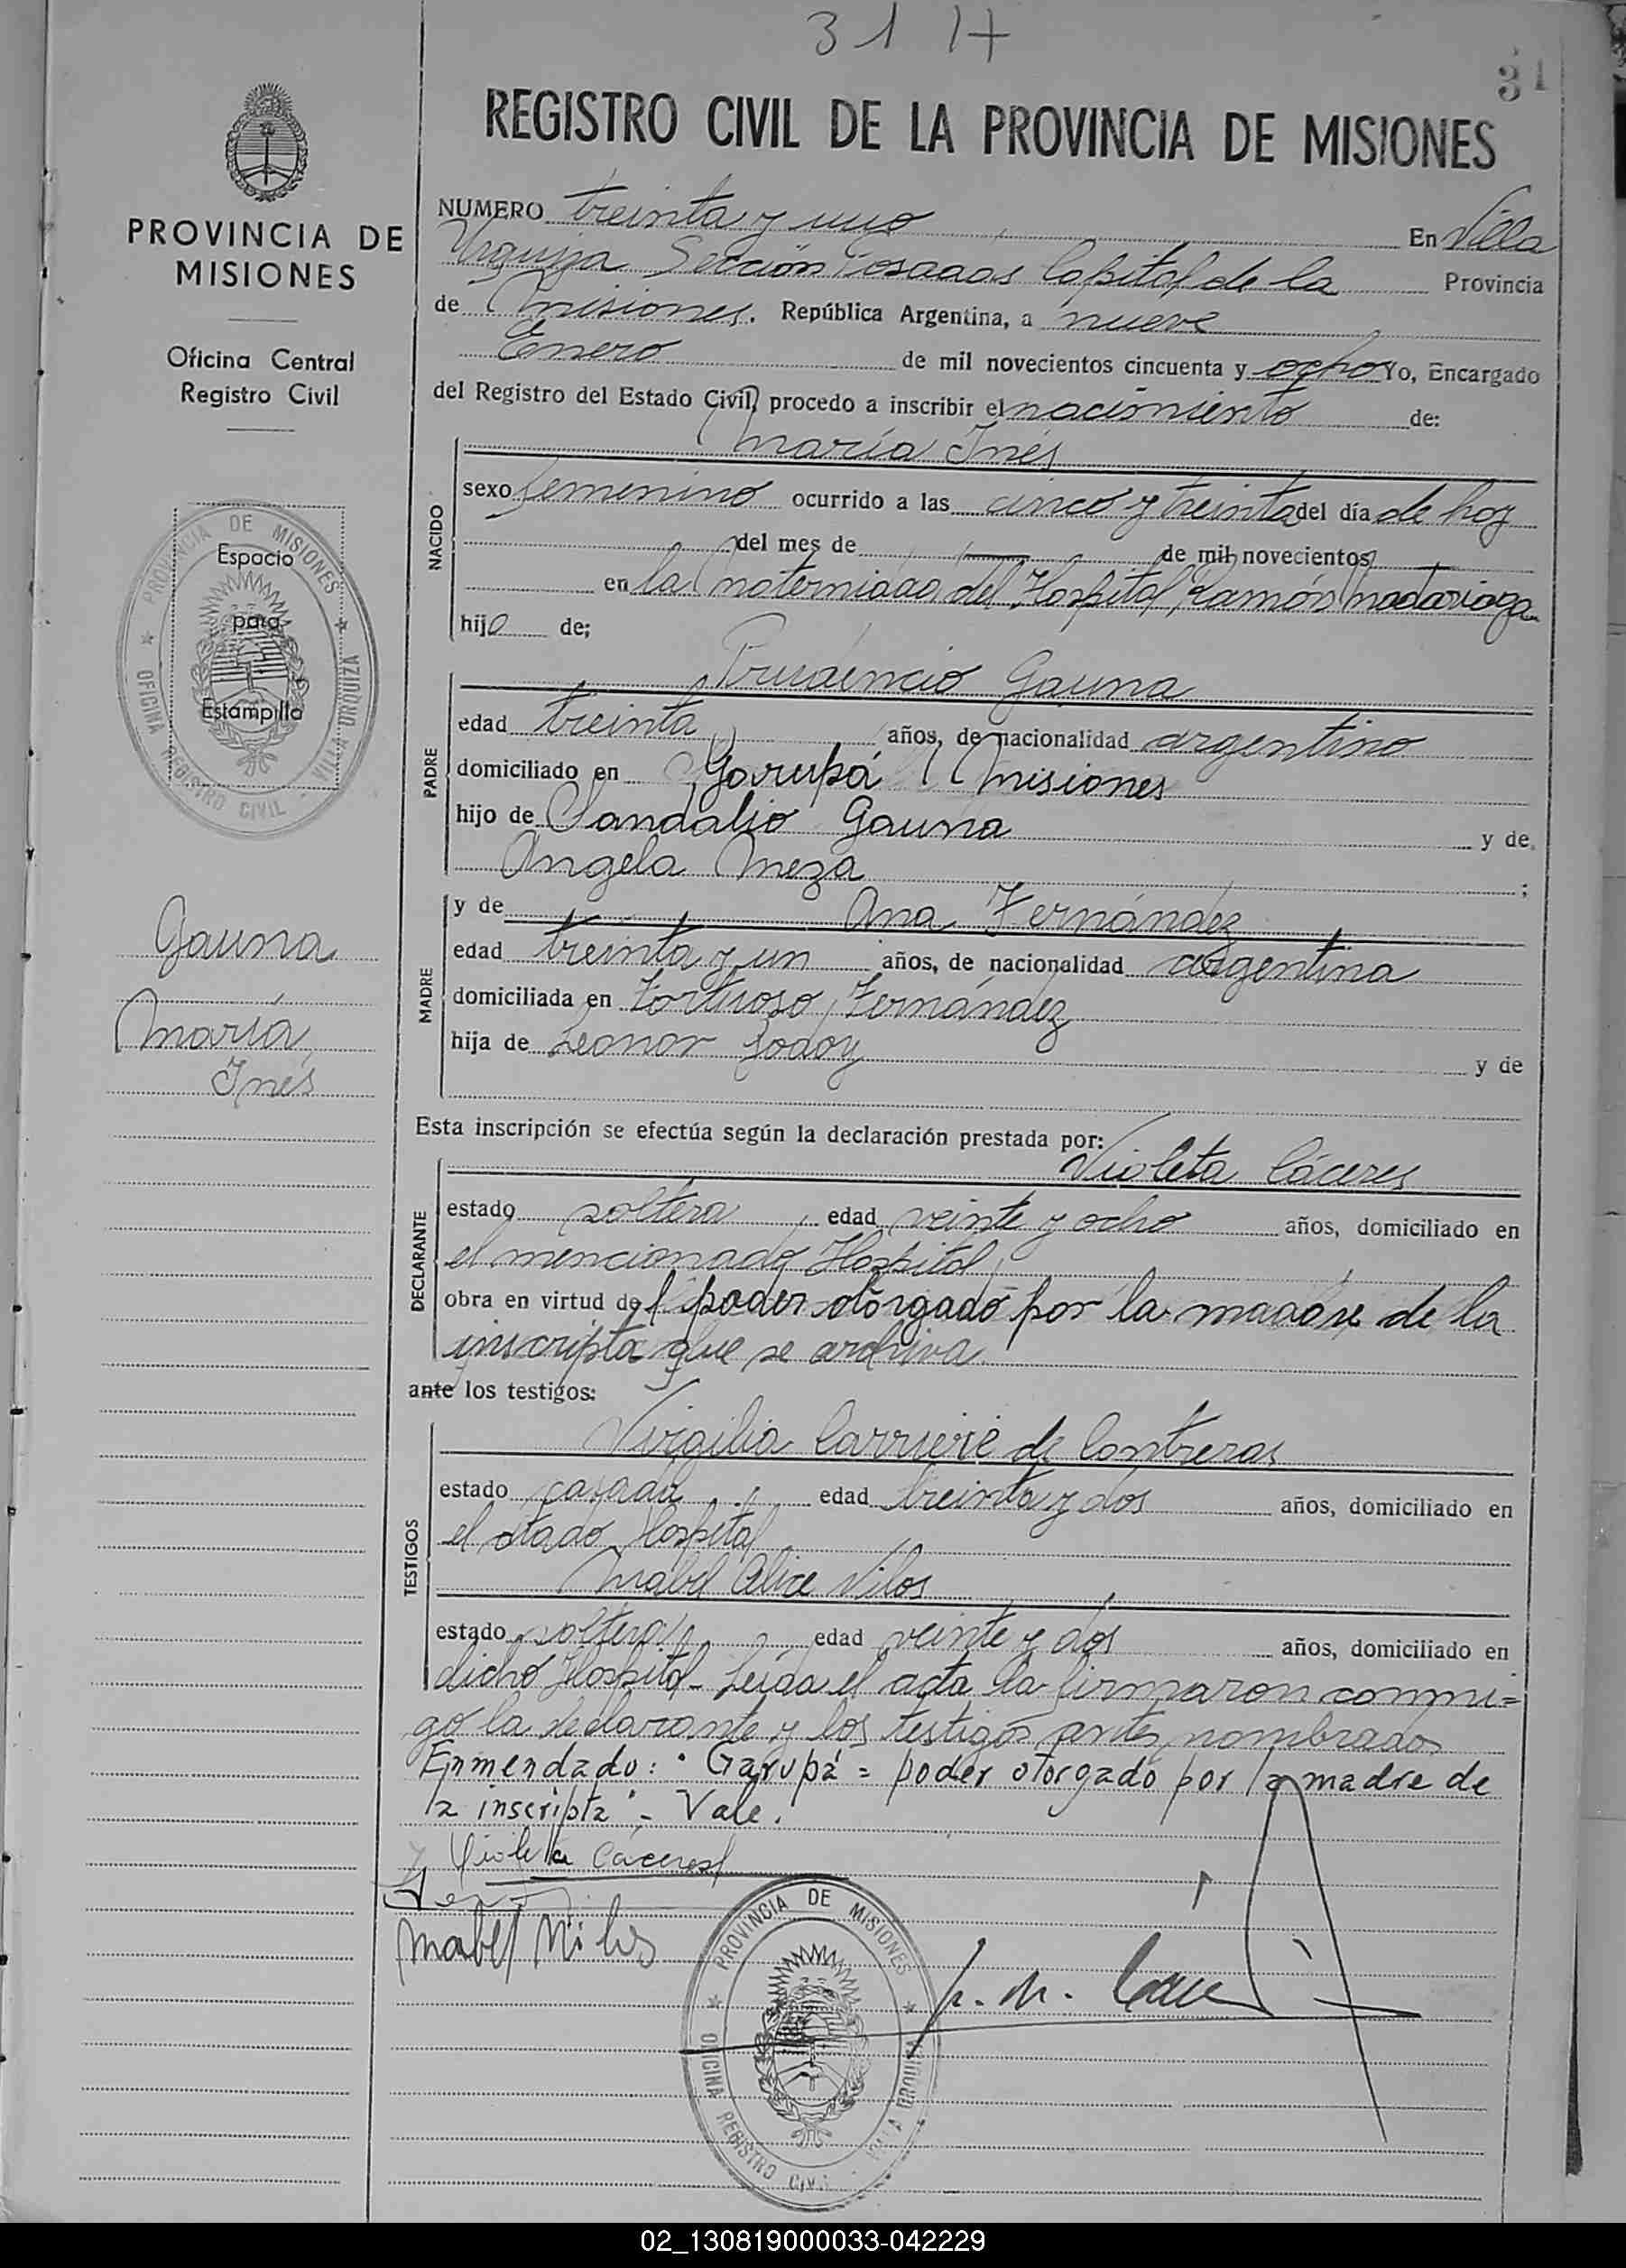 31 H
31
REGISTRO CIVIL DE LA PROVINCIA DE MISIONES
PROVINCIA DE
MISIONES
Oficina Central
Registro Civil
PROVINCIA DE MISIONES
OFICINA REGISTRO CIVIL - VILLA URQUIZA
Espacio
para
Estampilla
Gauna
María
Inés
NUMERO treinta y uno En Villa
Urquiza Sección Posadas Capital de la Provincia
de Misiones. República Argentina, a nueve
Enero de mil novecientos cincuenta y ocho Yo, Encargado
del Registro del Estado Civil, procedo a inscribir el nacimiento de:
María Inés
NACIDO
sexo femenino ocurrido a las cinco y treinta del día de hoy
del mes de de mil novecientos
en la Maternidad del Hospital Ramón Madariaga
hijo de;
Prudencio Gauna
PADRE
edad treinta años, de nacionalidad argentino
domiciliado en Garupá Misiones
hijo de Sandalio Gauna y de
Angela Meza ;
MADRE
y de Ana Fernández
edad treinta y un años, de nacionalidad argentina
domiciliada en Fortuoso Fernández
hija de Leonor Godoy y de
Esta inscripción se efectúa según la declaración prestada por:
Violeta Cáceres
DECLARANTE
estado soltera edad veinte y ocho años, domiciliado en
el mencionado Hospital
obra en virtud del poder otorgado por la madre de la
inscripta que se archiva
ante los testigos:
Virgilia Carrieré de Contreras
TESTIGOS
estado casada edad treinta y dos años, domiciliado en
el citado Hospital
Mabel Alice Vilos
estado soltera edad veinte y dos años, domiciliado en
dicho Hospital - Leída el acta la firmaron conmi=
go la declarante y los testigos antes nombrados
Enmendado: "Garupá = poder otorgado por la madre de
la inscripta" - Vale.
Violeta Cáceres
Mabel Vilos
PROVINCIA DE MISIONES
OFICINA REGISTRO CIVIL - VILLA URQUIZA
02_130819000033-042229